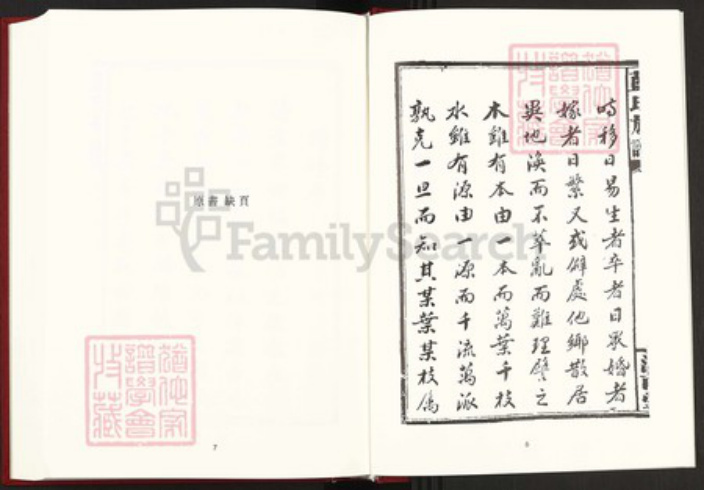 時移日易生者卒者日眾婚者
嫁者日繁又或僻處他鄉散居
異地渙而不萃亂而難理譬之
木雖有本由一本而萬葉千枝
水雖有源由一源而千流萬派
孰克一旦而知其某葉某枝屬
6
原書缺頁
7
FamilySearch